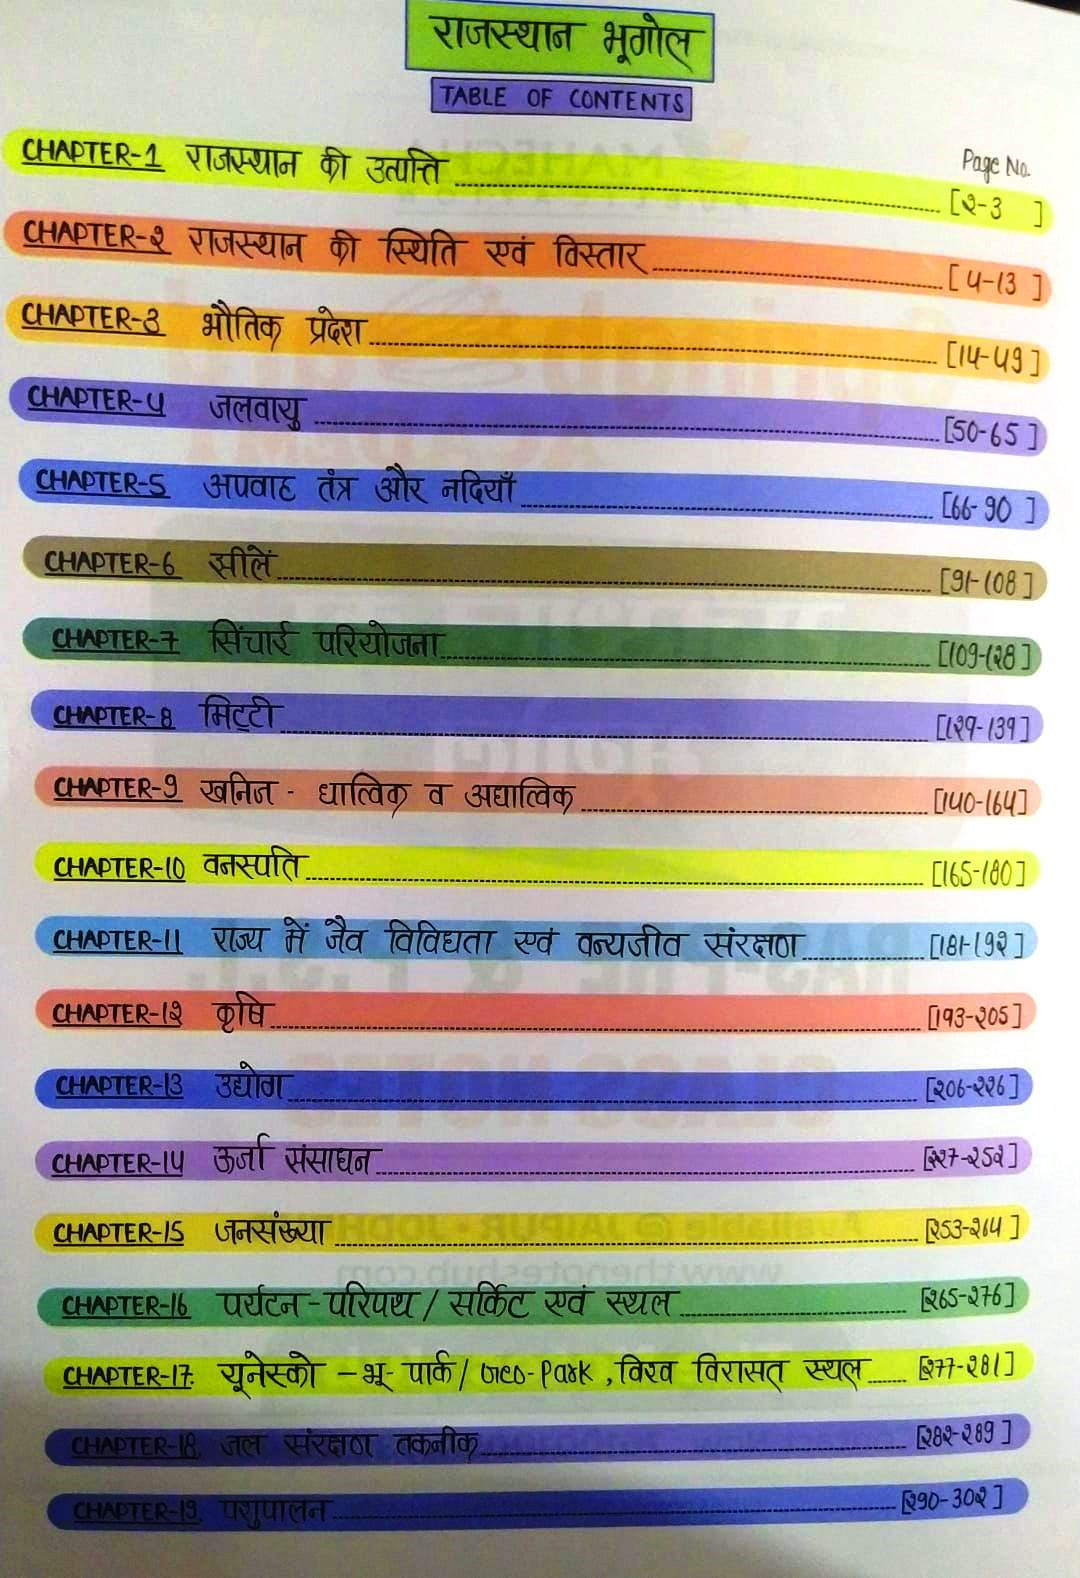 राजस्थान भूगोल
TABLE OF CONTENTS
Page No.
CHAPTER-1 राजस्थान की उत्पत्ति [2-3]
CHAPTER-2 राजस्थान की स्थिति एवं विस्तार [4-13]
CHAPTER-3 भौतिक प्रदेश [14-49]
CHAPTER-4 जलवायु [50-65]
CHAPTER-5 अपवाह तंत्र और नदियाँ [66-90]
CHAPTER-6 झीलें [91-108]
CHAPTER-7 सिंचाई परियोजना [109-128]
CHAPTER-8 मिट्टी [129-139]
CHAPTER-9 खनिज - धात्विक व अधात्विक [140-164]
CHAPTER-10 वनस्पति [165-180]
CHAPTER-11 राज्य में जैव विविधता एवं वन्यजीव संरक्षण [181-192]
CHAPTER-12 कृषि [193-205]
CHAPTER-13 उद्योग [206-226]
CHAPTER-14 ऊर्जा संसाधन [227-252]
CHAPTER-15 जनसंख्या [253-264]
CHAPTER-16 पर्यटन - परिपथ / सर्किट एवं स्थल [265-276]
CHAPTER-17 यूनेस्को - भू- पार्क / Geo-Park, विश्व विरासत् स्थल [277-281]
CHAPTER-18 जल संरक्षण तकनीक [282-289]
CHAPTER-19 पशुपालन [290-302]